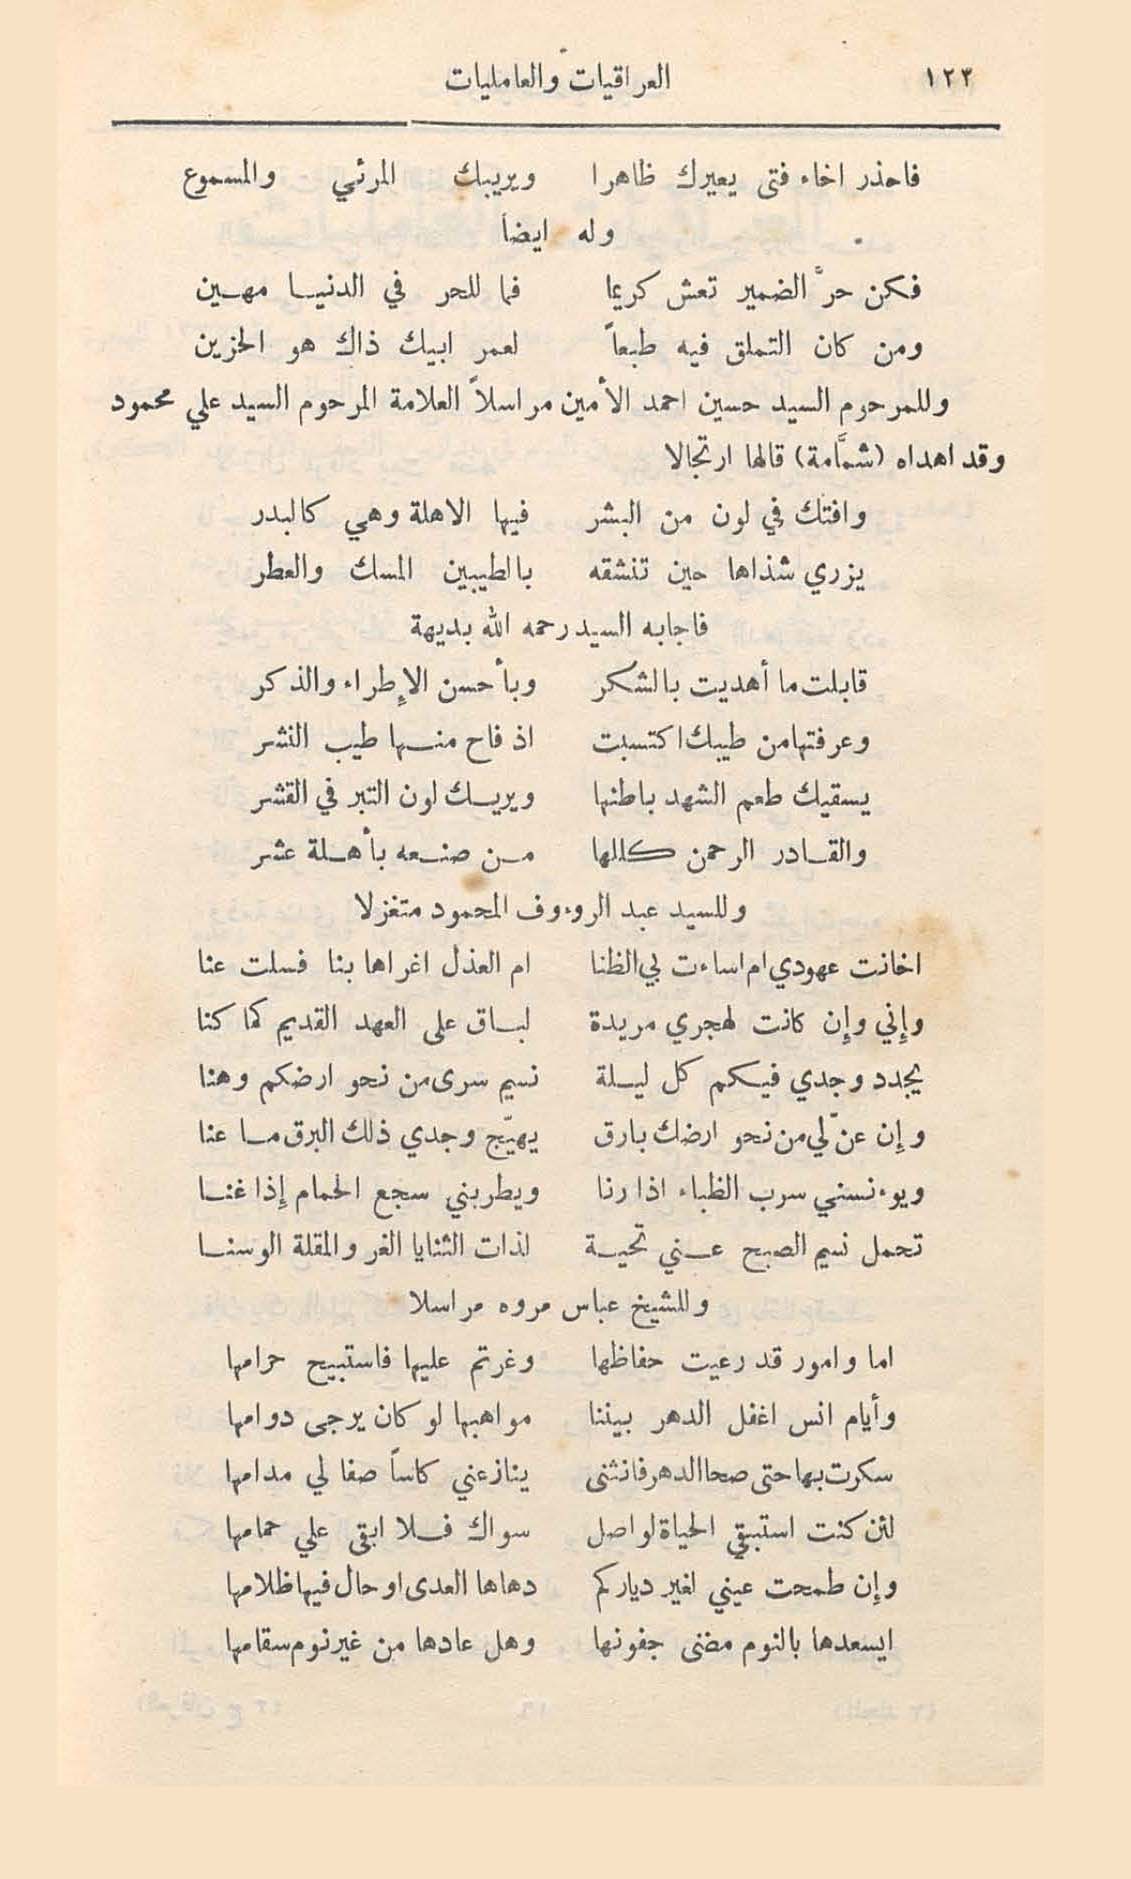 ١٢٣ العراقيات والعامليات
فاحذر اخاء فتى يعيرك ظاهرا ويريبك المرئي والمسموع
وله ايضاً
فكن حرَّ الضمير تعش كريما فما للحر في الدنيا مهين
ومن كان التملق فيه طبعاً لعمر ابيك ذاك هو الحزين
وللمرحوم السيد حسين احمد الأمين مراسلاً العلامة المرحوم السيد علي محمود
وقد اهداه (شمَّامة) قالها ارتجالا
وافتك في لون من البشر فيها الاهلة وهي كالبدر
يزري شذاها حين تنشقه بالطيبين المسك والعطر
فاجابه السيد رحمه الله بديهة
قابلت ما أهديت بالشكر وبأحسن الإطراء والذكر
وعرفتها من طيبك اكتسبت اذ فاح منها طيب النشر
يسقيك طعم الشهد باطنها ويريك لون التبر في القشر
والقادر الرحمن كللها من صنعه بأهلة عشر
وللسيد عبد الروءوف المحمود متغزلا
اخانت عهودي ام اساءت بي الظنا ام العذل اغراها بنا فسلت عنا
وإني وإن كانت لهجري مريدة لباق على العهد القديم كما كنا
يجدد وجدي فيكم كل ليلة نسيم سرى من نحو ارضكم وهنا
وإن عنّ لي من نحو ارضك بارق يهيّج وجدي ذلك البرق ما عنا
ويوءنسني سرب الظباء اذا رنا ويطربني سجع الحمام إذا غنا
تحمل نسيم الصبح عني تحية لذات الثنايا الغر والمقلة الوسنا
وللشيخ عباس مروه مراسلا
اما وامور قد رعيت حفاظها وغرتم عليها فاستبيح حرامها
وأيام انس اغفل الدهر بيننا مواهبها لو كان يرجى دوامها
سكرت بها حتى صحا الدهر فانثنى ينازعني كاساً صفا لي مدامها
لئن كنت استبقي الحياة لواصل سواك فلا ابقى علي حمامها
وإن طمحت عيني لغير دياركم دهاها العدى او حال فيها ظلامها
ايسعدها بالنوم مضنى جفونها وهل عادها من غير نوم سقامها